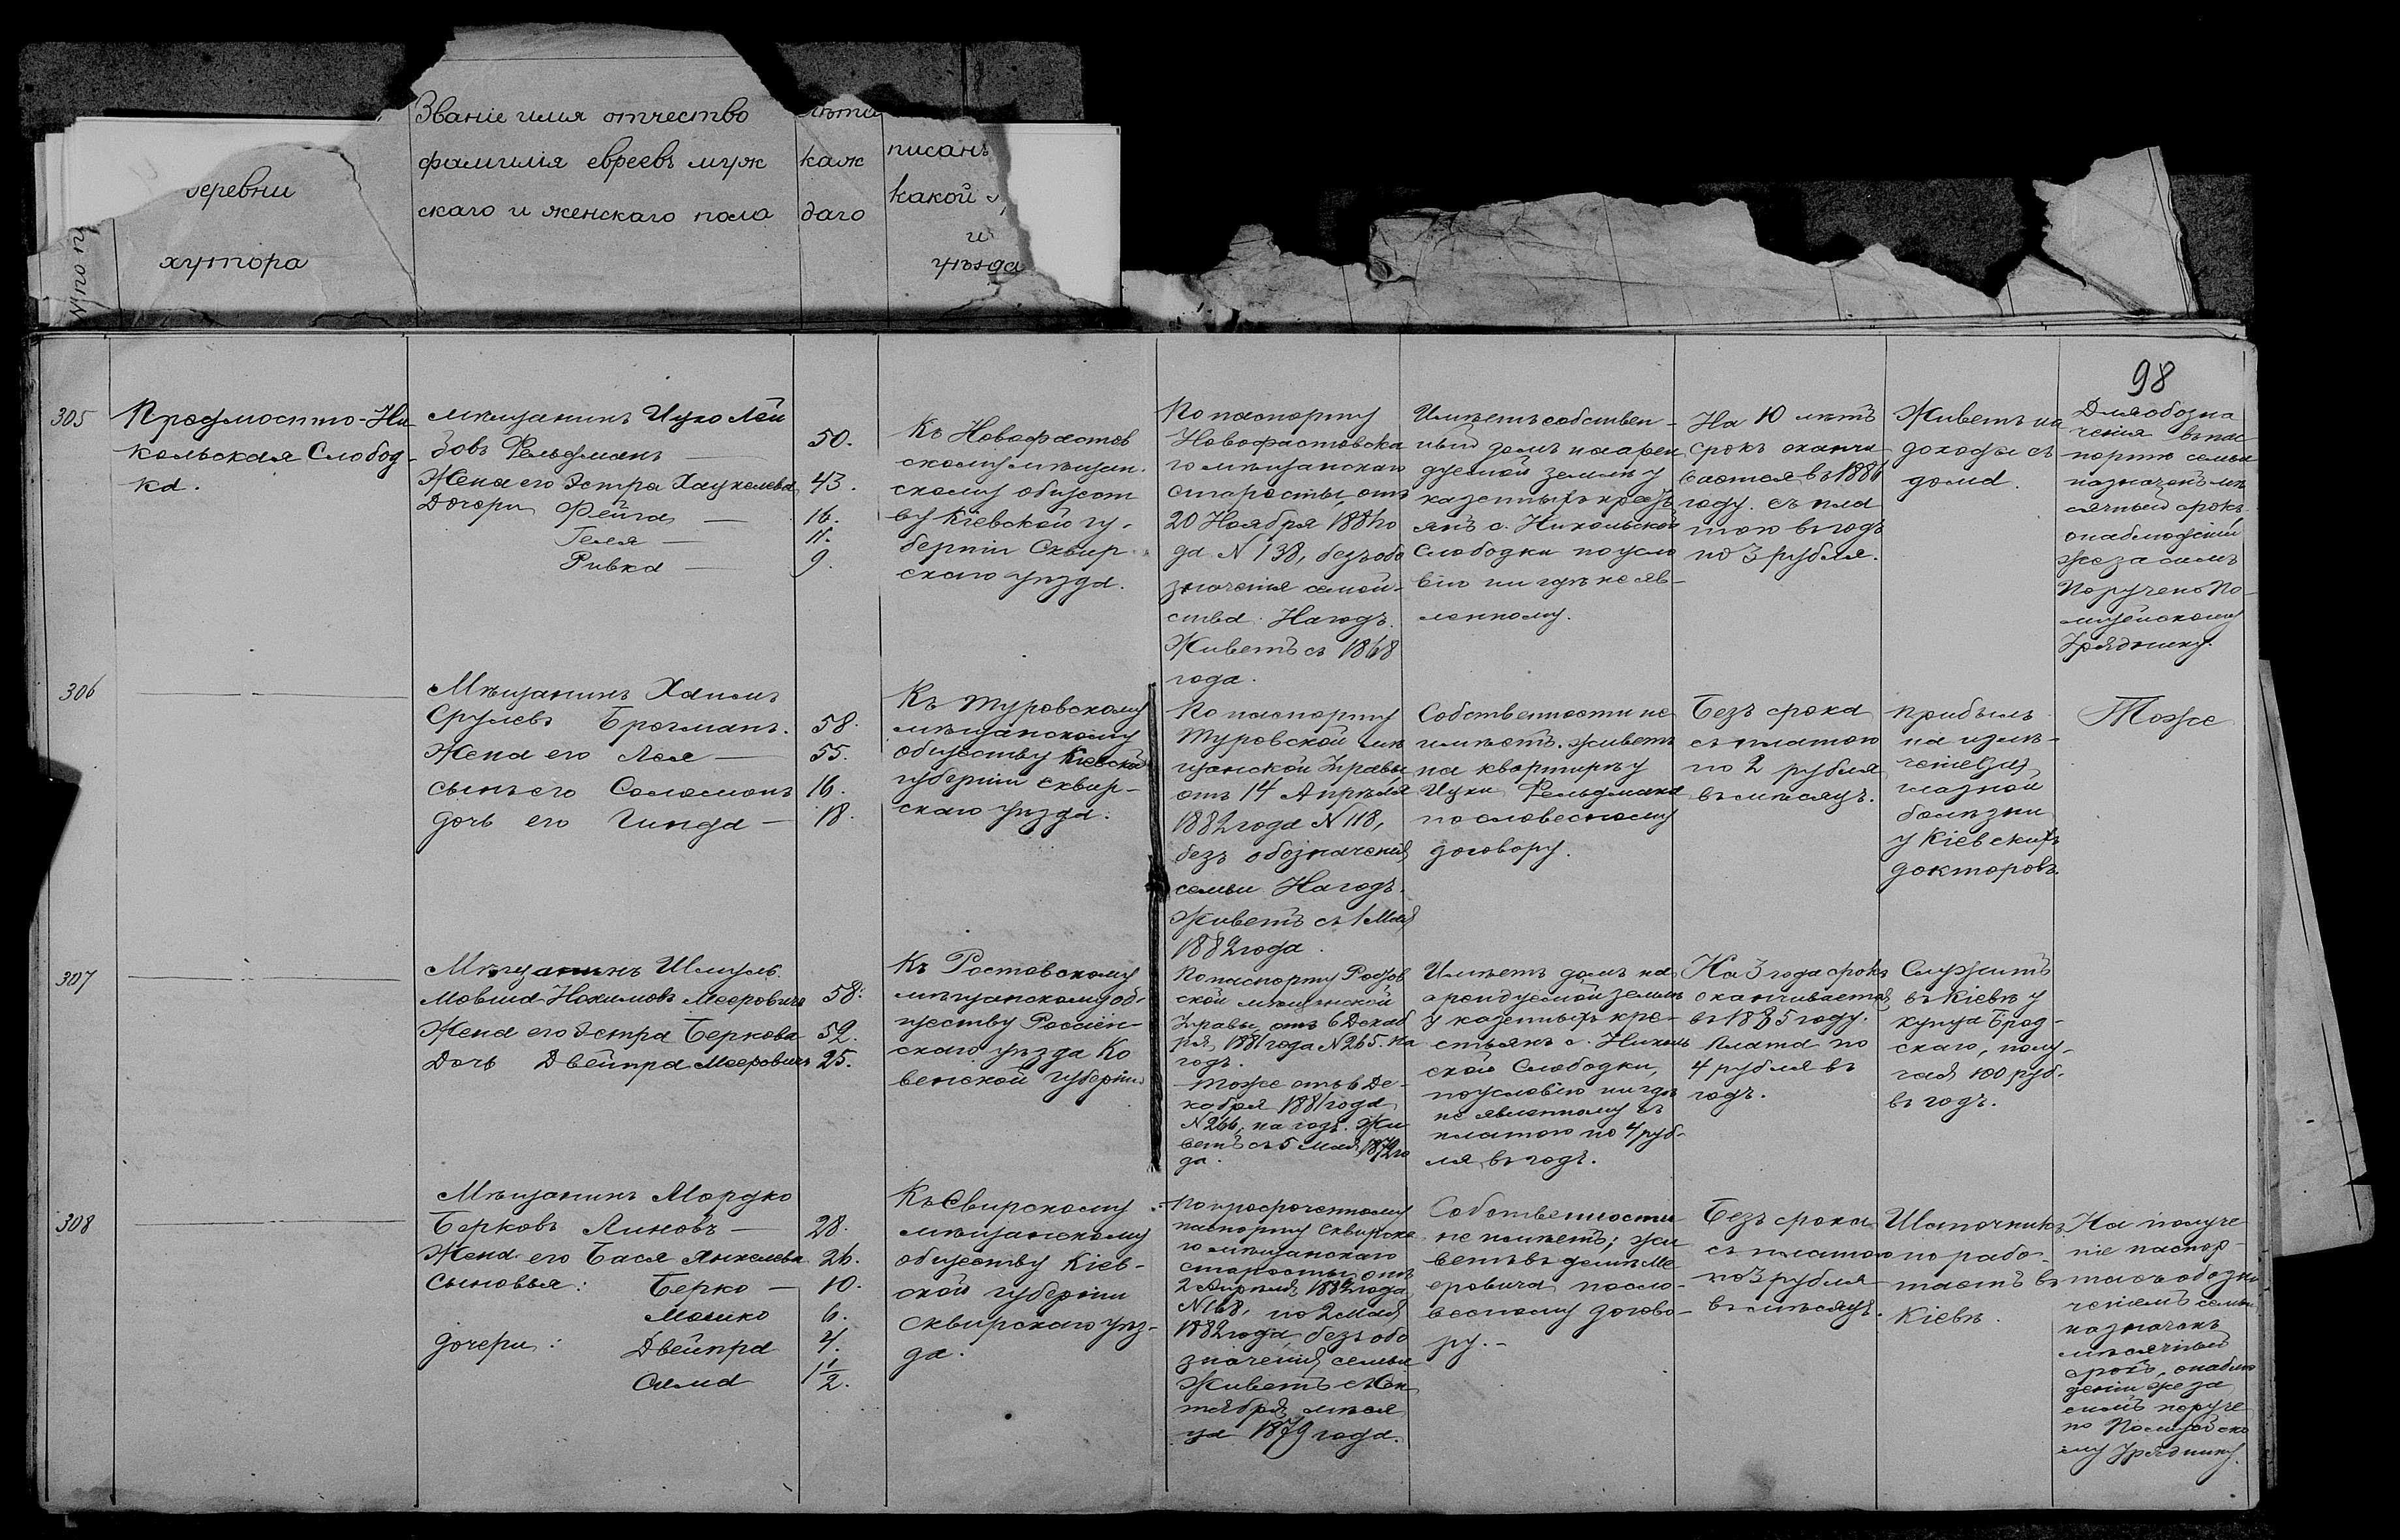 Званіе имя отчество
фамилія евреевъ муж
скаго и женскаго пола
лѣта
каж
даго
писанъ
какой
и
уѣзда
деревни
хутора
98
305
Предмостно-Ни
кольская Слобод-
ка.
мѣщанинъ Ицко Лей
зовъ Фельдманъ
Жена его Эстра Хацкелева
Дочери Фейга
Геля
Ривка
50.
43.
16.
11.
9.
Къ Новофастов
скому мѣщан.
скому общест
ву Кіевской гу-
берніи Сквир
скаго уѣзда.
По паспорту
Новофастовска
го мѣщанскаго
старосты отъ
20 Ноября 1881 го
да N 138, безъ обо
значенія семей-
ства. На годъ.
Живетъ съ 1868
года.
Имѣетъ собствен-
ный домъ на арен
дуемой землѣ у
казенныхъ крест
янъ с. Никольской
Слободки по усло
вію нигдѣ не яв-
ленному.
На 10 лѣтъ
срокъ оканчи
вается въ 1886
году. съ пла
тою въ годъ
по 3 рубля.
Живетъ на
доходы съ
дома.
Для обозна
ченія въ пас
портѣ семьи
назначенъ мѣ
сячный срокъ,
о наблюденіи
же за симъ
Поручено По-
лицейскому
Уряднику.
306
Мѣщанинъ Хаимъ
Срулевъ Брохманъ.
Жена его Лея
сынъ его Соломонъ
дочь его Гинда
58.
55.
16.
18.
Къ Туровскому
мѣщанскому
обществу Кіевской
губерніи Сквир-
скаго уѣзда.
По паспорту
Туровской мѣ
щанской Управы
отъ 14 Апрѣля
1882 года N 118,
безъ обозначенія
семьи На годъ.
Живетъ съ 1 Мая
1882 года.
Собственности не
имѣетъ. живетъ
на квартирѣ у
Ицки Фельдмана
по словесному
договору.
Безъ срока
съ платою
по 2 рубля
въ мѣсяцъ.
прибылъ
на излѣ-
ченіе
глазной
болѣзни
у Кіевскихъ
докторовъ.
Тоже
307
Мѣщанинъ Шмуль
Мовша Нохимовъ Мееровичъ
Жена его Эстра Беркова
Дочь Двейпра Мееровичъ
58.
52.
25.
Къ Ростовскому
мѣщанскому об-
ществу Россіен-
скаго уѣзда Ко
венской губерніи
По паспорту
ской мѣщанской
Управы отъ 6 Декаб
ря 1881 года N 265. на
годъ.
Тоже отъ 6 Де-
кабря 1881 года
N 266, на годъ. Жи
ветъ съ 5 мая 1872 го
да.
Имѣетъ домъ на
арендуемой землѣ
у казенныхъ кре-
стьянъ с. Николь
ской Слободки,
по условію нигдѣ
не явленному съ
платою по 4 руб-
ля въ годъ.
На 3 года срокъ
оканчивается
въ 1885 году.
Плата по
4 рубля въ
годъ.
Служитъ
въ Кіевѣ у
купца Брод-
скаго, полу-
чая 100 руб-
въ годъ.
308
Мѣщанинъ Мордко
Берковъ Линовъ
Жена его Бася Янкелева
Сыновья: Берко
Мошко
дочери: Двейпра
Сима
28.
26.
10.
6.
4.
1 1/2.
Къ Сквирскому
мѣщанскому
обществу Кіев-
ской губерніи
Сквирскаго уѣз-
да.
По просроченному
паспорту Сквирска
го мѣщанскаго
старосты отъ
2 Апрѣля 1882 года
N 168, по 2 Мая
1882 года, безъ обо
значенія семьи
Живетъ съ Ок
тября мѣся
ца 1879 года.
Собственности
не имѣетъ; жи
ветъ въ домѣ Ме
еровича по сло-
весному догово-
ру.-
Безъ срока
съ платою
по 3 рубля
въ мѣсяцъ.
Шапочникъ,
но рабо-
таетъ въ
Кіевѣ.
На получе
ніе паспор-
та съ обозна
ченіемъ семьи
назначенъ
мѣсячный
срокъ, о наблю
деніи же за
симъ поруче
но Полицейско
му Уряднику.